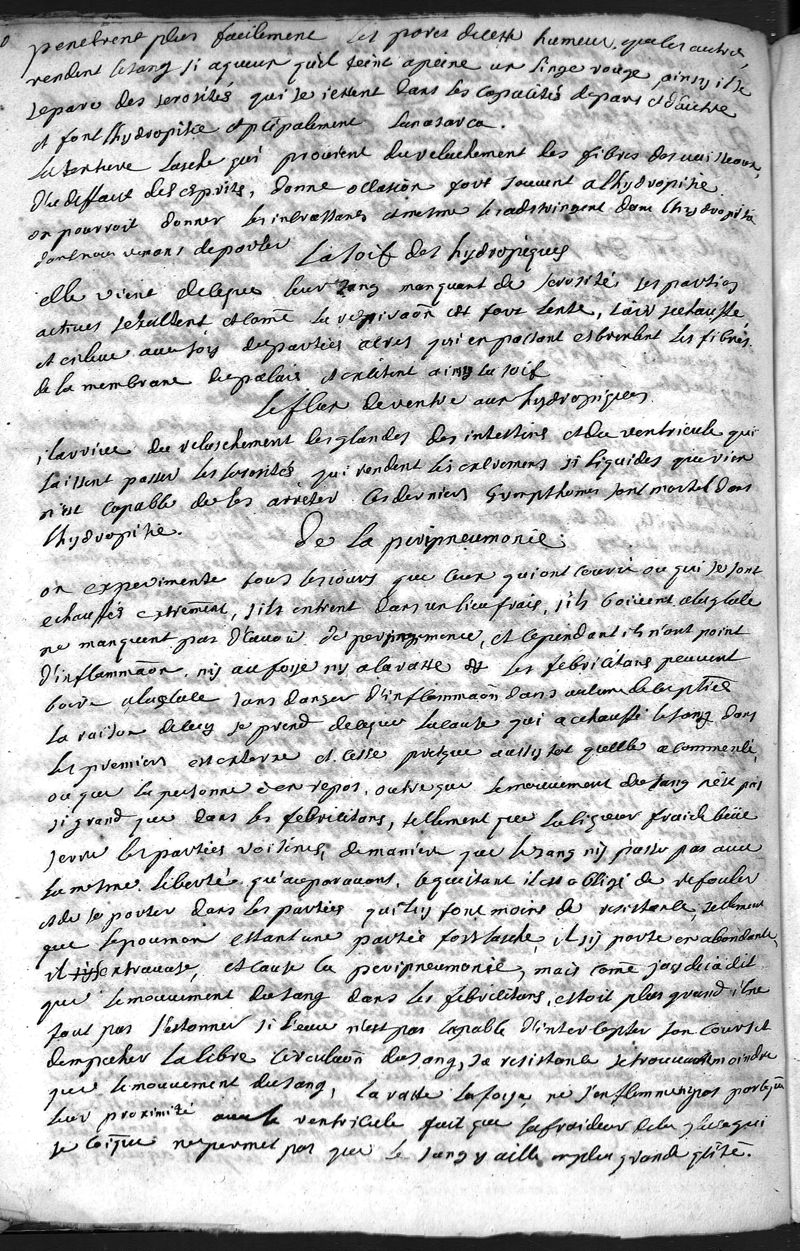 penetrent plus facilement les pores de cette humeur, que les autres,
rendent le sang si aqueux qu'il teint apeine un linge rouge, ainsy il se
separe des serosités qui se iettent dans les capacités de part et d'autre
et font l'hydropisie et pñpalement lanasarca.
La tenture lasche qui provient du relachement des fibres des vaisseaux,
du deffaut des esprits, donne occasion fort souvent a l'hydropisie.
on pourroit donner les incrassans et mesme les adstringent dans l'hydropisie
dont nous venons de parler
La soif des hydropiques
elle vient de ce que leur sang manquant de serosité les parties
actives s'exaltent, et comē la respiraōn est fort lente, l'air s'echauffe
et enleve avec soy des parties acres qui en passant ebranlent les fibres
de la membrane du palais et excitent ainsy la soif
Le flux de ventre aux hydropiques
il arrive du relaschement des glandes des intestins et du ventricule qui
laissent passer les serosités qui rendent les excremens si liquides que rien
n'est capable de les arrêter. Ces derniers sympthomes sont mortel dans
l'hydropisie.
De la peripneumonie.
on experimente tous les iours que ceux qui ont couru ou qui se sont
echauffés extremēnt, s'ils entrent dans un lieu frais, s'ils boivent a la glace
ne manquent pas d'avoir de peripneumonie, et cependant ils n'ont point
d'inflammaōn ny au foye ny a la ratte et les febricitans peuvent
boire a la glace sans danger d'inflammaōn dans aucune de ces pties
la raison de cecy se prend de ce que la cause qui a echauffé le sang dans
les premiers est externe et cesse presque aussy tot quelle a commencé,
ou que la personne e en repos, outre que le mouvement du sang n'est pas
si grand que dans les febricitans, tellement que la liqueur fraiche beüe
serre les parties voisines, de maniere que le sang n'y passe pas avec
la mesme liberté qu'auparavant, ce qui etant il est obligé de refouler
et de se porter dans les parties qui luy font moins de resistance, tellement
que le poumon estant une partie fort lasche, il s'y porte en abondance,
il s'y extravase, et cause la peripneumonie, mais comē j'ay deià dit
que le mouvement du sang dans les febricitans, estoit plus grand, il ne
faut pas s'estonner si l'eau n'est pas capable d'intercepter son cours et
d'empecher la libre circulaōn du sang, sa resistance se trouvant moindre
que le mouvement du sang, la ratte le foye ne s'enflamment pas parceque
leur proximité avec le ventricule fait que la froideur de la glace qui
se coīque ne permet pas que le sang y aille en plus grande qtité.